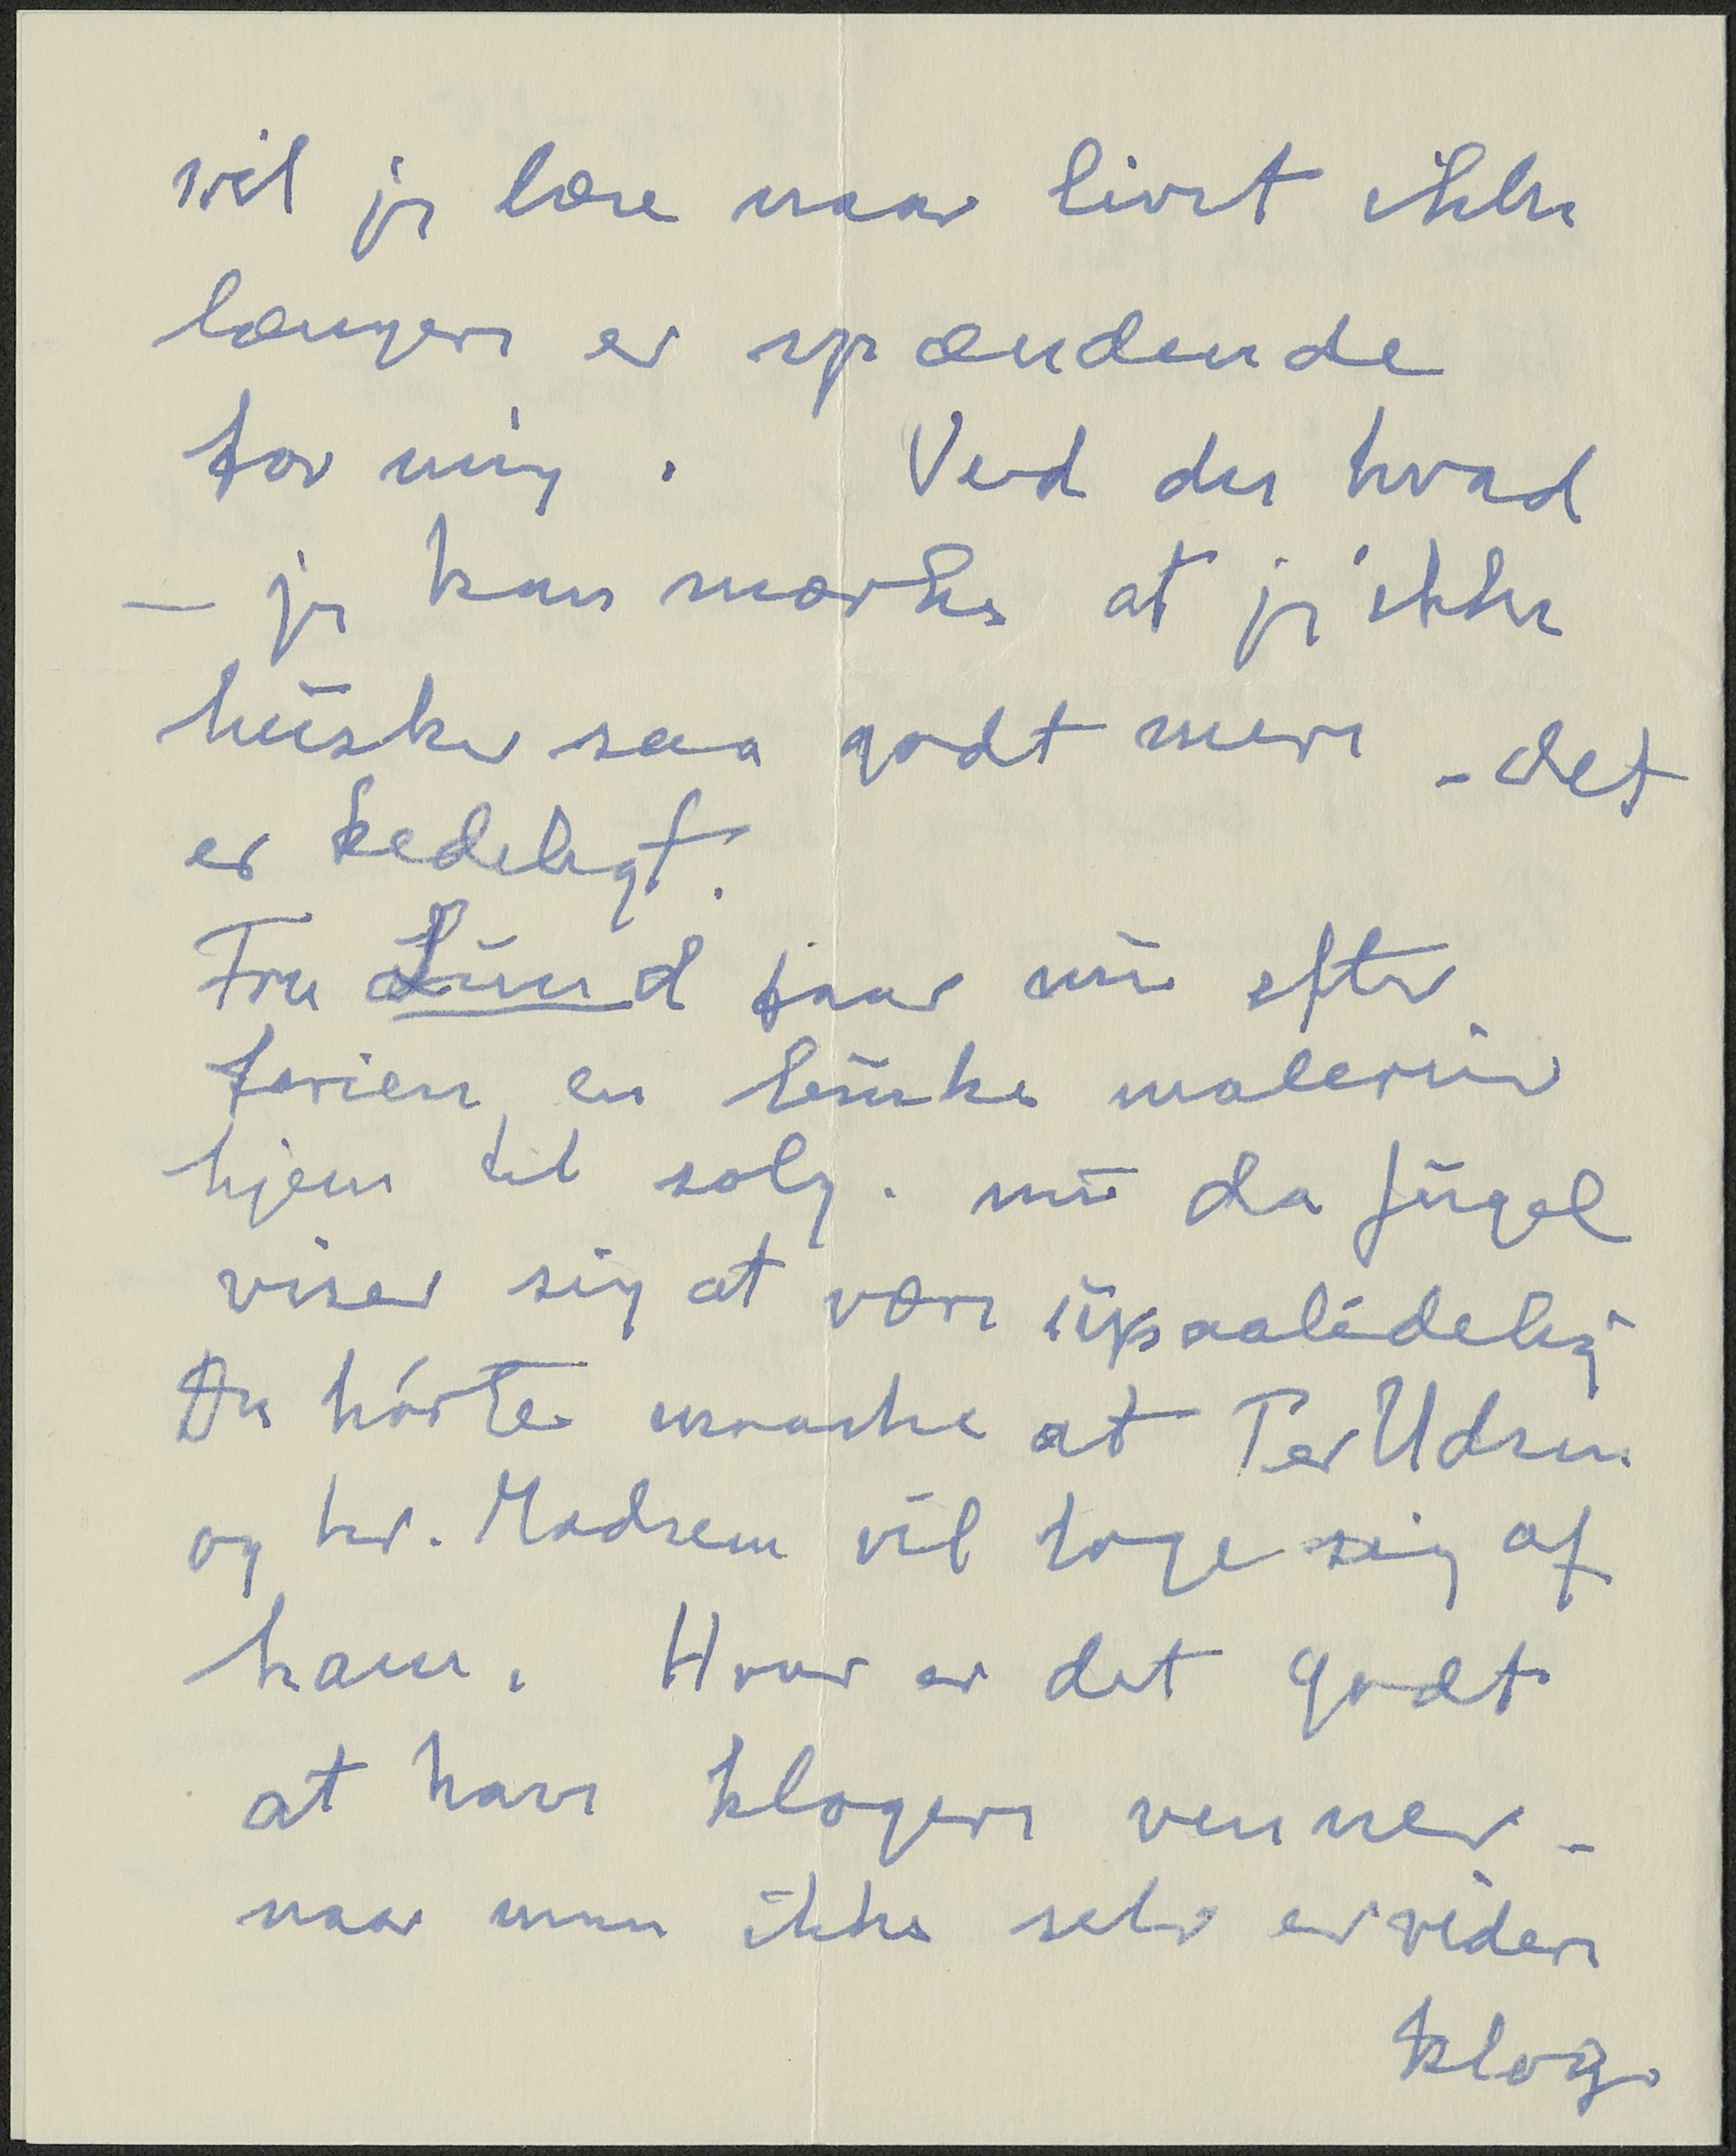 vil je læse naar livet ikke
længere er spændende
for mig. Ved du hvad
– je kan mærke at je ikke
husker saa godt mere – det
er kedeligt.
Fru Lund faar nu efter
ferien en bunke malerier
hjem til salg. nu da Jugel
viser sig at være upaalidelig
Du hørte maaske at Per Udsen
og hr. Madsen vil tage sig af
ham. Hvor er det godt
at have klogere venner –
naar man ikke selv er videre
klog.